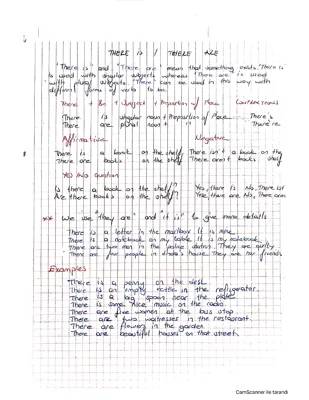 THERE IS / THERE ARE
"There is" and "There are" mean that something exists. "There is"
is used with singular subjects whereas "There are" is used
with plural subjects. "There" can be used in this way with
different forms of verbs to be.
There + Be + Subject + Preposition of Place
There is singular noun + Preposition of Place There's
There are plural noun + " " There're
Affirmative Negative
There is a book on the shelf There isn't a book on the
There are books on the shelf. There aren't books shelf
YES NO Question
Is there a book on the shelf? Yes, there is No, There isn't
Are there books on the shelf? Yes, there are No, There aren't
** We use "They are" and "it is" to give more details
There is a letter in the mailbox It is mine
There is a notebook on my table. It is my notebook
There are two men in the police station. They are
There are four people in house. They are her friends
Examples
There is a penny on the desk
There is an empty bottle in the refrigerator.
There is a big spoon near the plate
There is some nice music on the radio
There are five women at the bus stop
There are two waitresses in the restaurant.
There are flowers in the garden
There are beautiful houses on that street.
CamScanner ile tarandı